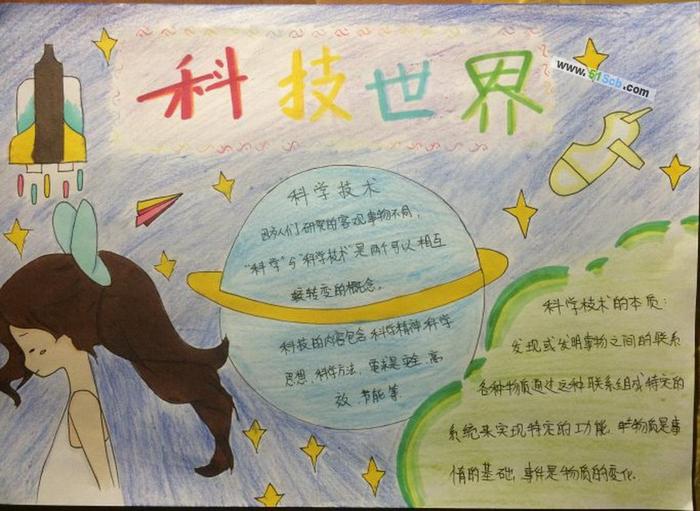 科技世界
www.51Scb.com
科学技术
因人们研究的客观事物不同，
"科学"与"科学技术"是两个可以相互
转变的概念。
科技的内容包含科学精神 科学
思想、科学方法，安全、高
效、节能等
科学技术的本质：
发现或发明事物之间的联系
各种物质通过这种联系组成特定的
系统来实现特定的功能，物质是事
情的基础，事件是物质的变化.